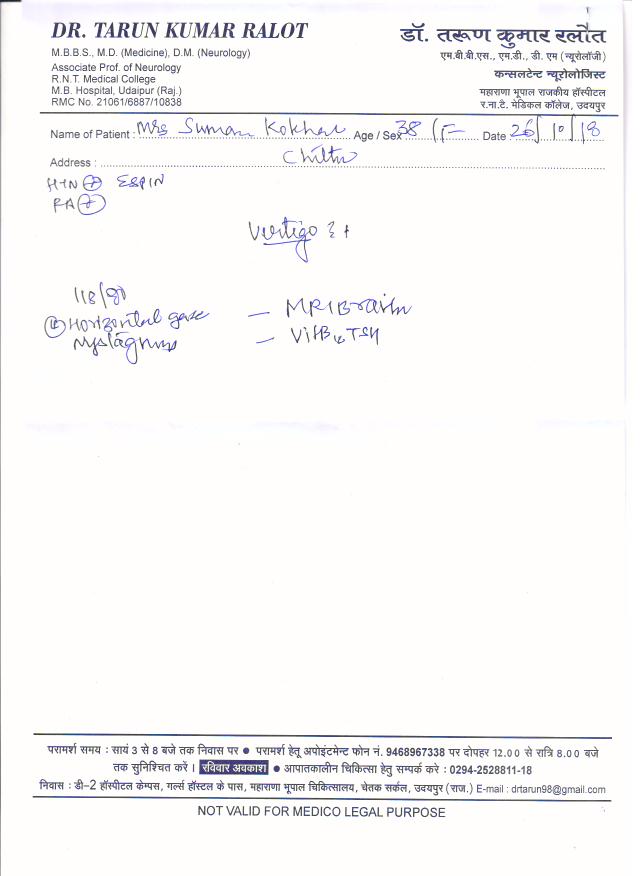 DR. TARUN KUMAR RALOT
M.B.B.S., M.D. (Medicine), D.M. (Neurology)
Associate Prof. of Neurology
R.N.T. Medical College
M.B. Hospital, Udaipur (Raj.)
RMC No. 21061/6887/10838
डॉ. तरूण कुमार रलौत
एम.बी.बी.एस., एम.डी., डी. एम (न्यूरोलॉजी)
कन्सलटेन्ट न्यूरोलोजिस्ट
महाराणा भूपाल राजकीय हॉस्पीटल
र.ना.टै. मेडिकल कॉलेज, उदयपुर
Name of Patient : Mrs Suman Age / Sex 38 / F Date 26/10/18
Address :
HTN + ESPIN
RA +
Vertigo
118/90
Horizontal gaze
nystagmus
— MRI Brain
— VitB12 TSH
परामर्श समय : सायं 3 से 8 बजे तक निवास पर ● परामर्श हेतू अपोइंटमेन्ट फोन नं. 9468967338 पर दोपहर 12.00 से रात्रि 8.00 बजे
तक सुनिश्चित करें । रविवार अवकाश ● आपातकालीन चिकित्सा हेतु सम्पर्क करे : 0294-2528811-18
निवास : डी–2 हॉस्पीटल केम्पस, गर्ल्स हॉस्टल के पास, महाराणा भूपाल चिकित्सालय, चेतक सर्कल, उदयपुर (राज.) E-mail : drtarun98@gmail.com
NOT VALID FOR MEDICO LEGAL PURPOSE